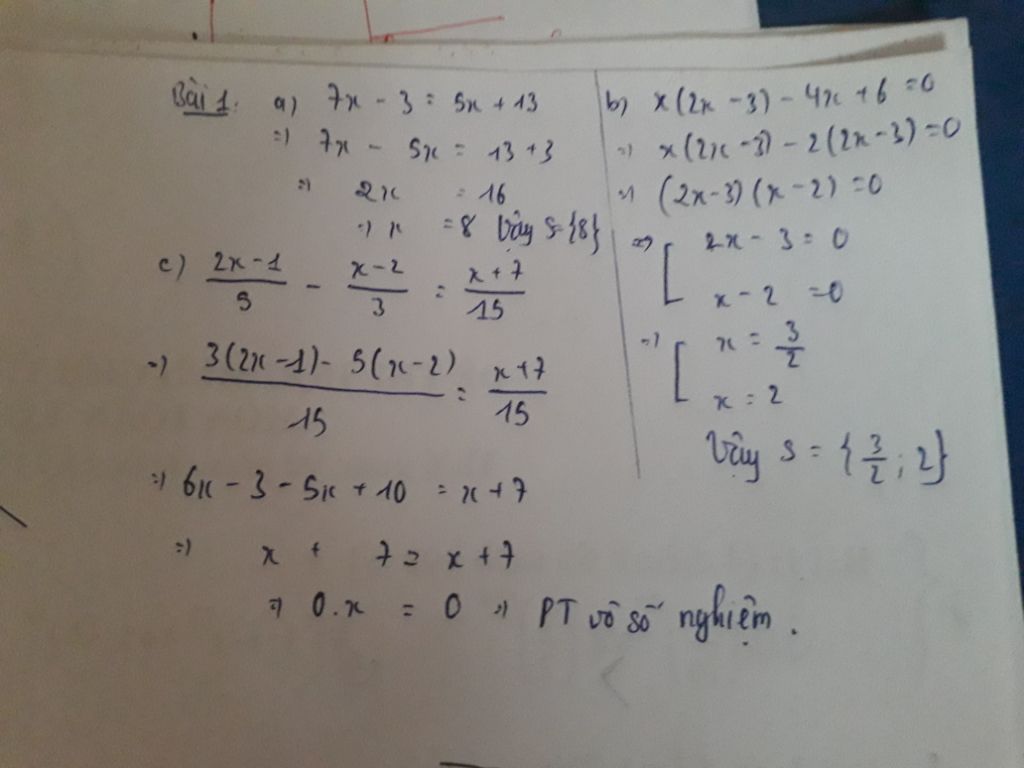 Bài 1. a) 7x - 3 = 5x + 13
=) 7x - 5x = 13 + 3
=) 2x = 16
=) x = 8 Vậy S = {8}
c) \frac{2x-1}{5} - \frac{x-2}{3} = \frac{x+7}{15}
=) \frac{3(2x-1) - 5(x-2)}{15} = \frac{x+7}{15}
=) 6x - 3 - 5x + 10 = x + 7
=) x + 7 = x + 7
=) 0.x = 0 =) PT vô số nghiệm.
b) x(2x - 3) - 4x + 6 = 0
=) x(2x - 3) - 2(2x - 3) = 0
=) (2x - 3)(x - 2) = 0
=) [ 2x - 3 = 0
x - 2 = 0
=) [ x = \frac{3}{2}
x = 2
Vậy S = {\frac{3}{2}; 2}